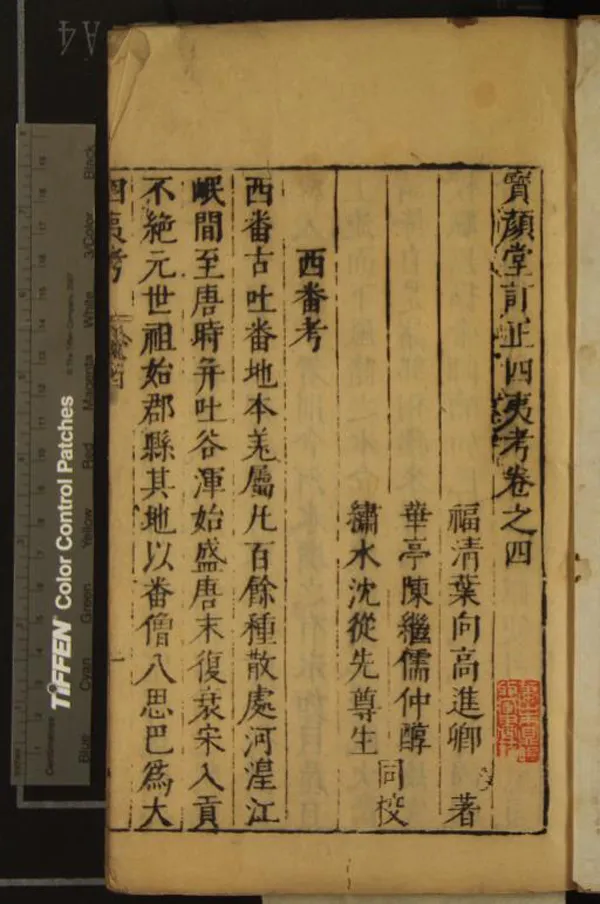 寳顏堂訂正四夷考卷之四
福清葉向高進卿 著
華亭陳繼儒仲醇
繡水沈從先尊生
同校
西番考
西番古吐番地本羌屬凡百餘種散處河湟江
岷間至唐時并吐谷渾始盛唐末復衰宋入貢
不絶元世祖始郡縣其地以番僧八思巴爲大
四夷考
一
A4
TIFFEN Color Control Patches
Blue
Cyan
Green
Yellow
Red
Magenta
White
3/Color
Black
Centimetres